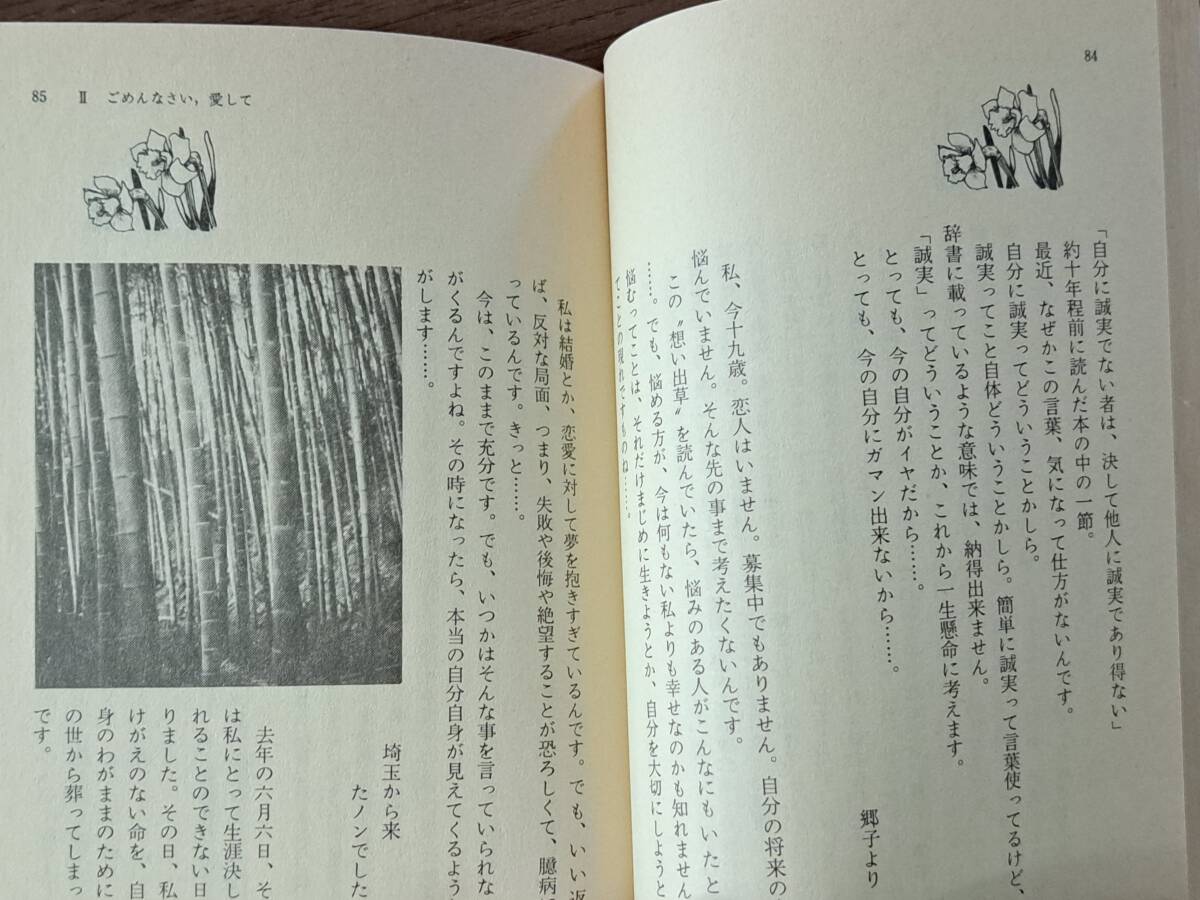 84
「自分に誠実でない者は、決して他人に誠実であり得ない」
約十年程前に読んだ本の中の一節。
最近、なぜかこの言葉、気になって仕方がないんです。
自分に誠実ってどういうことかしら。
誠実ってこと自体どういうことかしら。簡単に誠実って言葉使ってるけど、
辞書に載っているような意味では、納得出来ません。
「誠実」ってどういうことか、これから一生懸命に考えます。
とっても、今の自分がイヤだから……。
とっても、今の自分にガマン出来ないから……。
郷子より
私、今十九歳。恋人はいません。募集中でもありません。自分の将来の
悩んでいません。そんな先の事まで考えたくないんです。
この〝想い出草〟を読んでいたら、悩みのある人がこんなにもいたと
……。でも、悩める方が、今は何もない私よりも幸せなのかも知れません
悩むってことは、それだけまじめに生きようとか、自分を大切にしようと
てことの現れですものね……。
85 Ⅱ ごめんなさい，愛して
私は結婚とか、恋愛に対して夢を抱きすぎているんです。でも、いい返
ば、反対な局面、つまり、失敗や後悔や絶望することが恐ろしくて、臆病
っているんです。きっと……。
今は、このままで充分です。でも、いつかはそんな事を言っていられな
がくるんですよね。その時になったら、本当の自分自身が見えてくるよう
がします……。
埼玉から来
たノンでした
去年の六月六日、そ
は私にとって生涯決し
れることのできない日
りました。その日、私
けがえのない命を、自
身のわがままのために
の世から葬ってしまっ
です。